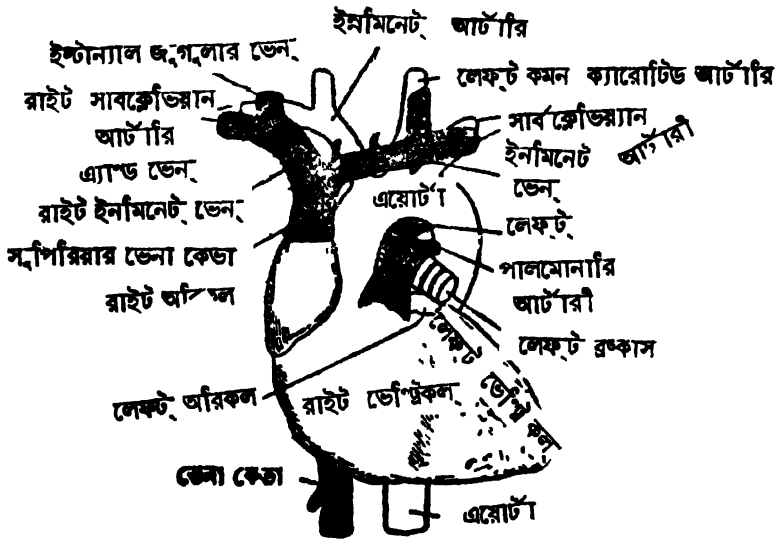 ইন্নমিনেট্ আর্টারি
ইন্টার্ন্যাল জুগুলার ভেন্
লেফ্ট কমন ক্যারোটিড আর্টারি
রাইট সাবক্লেভিয়ান
আর্টারি
এ্যাণ্ড ভেন্
সাবক্লেভিয়্যান
আর্টারী
ইনমিনেট
ভেন্
রাইট ইনমিনেট্ ভেন্
এয়োর্টা
লেফ্ট্
সুপিরিয়ার ভেনা কেভা
পালমোনারি
আর্টারী
রাইট
লেফ্ট ব্রঙ্কাস
লেফ্ট্ অরিকল
রাইট ভেন্ট্রিকল্
লেফ্ট ভেন্ট্রিকল
ভেনা কেভা
এয়োর্টা